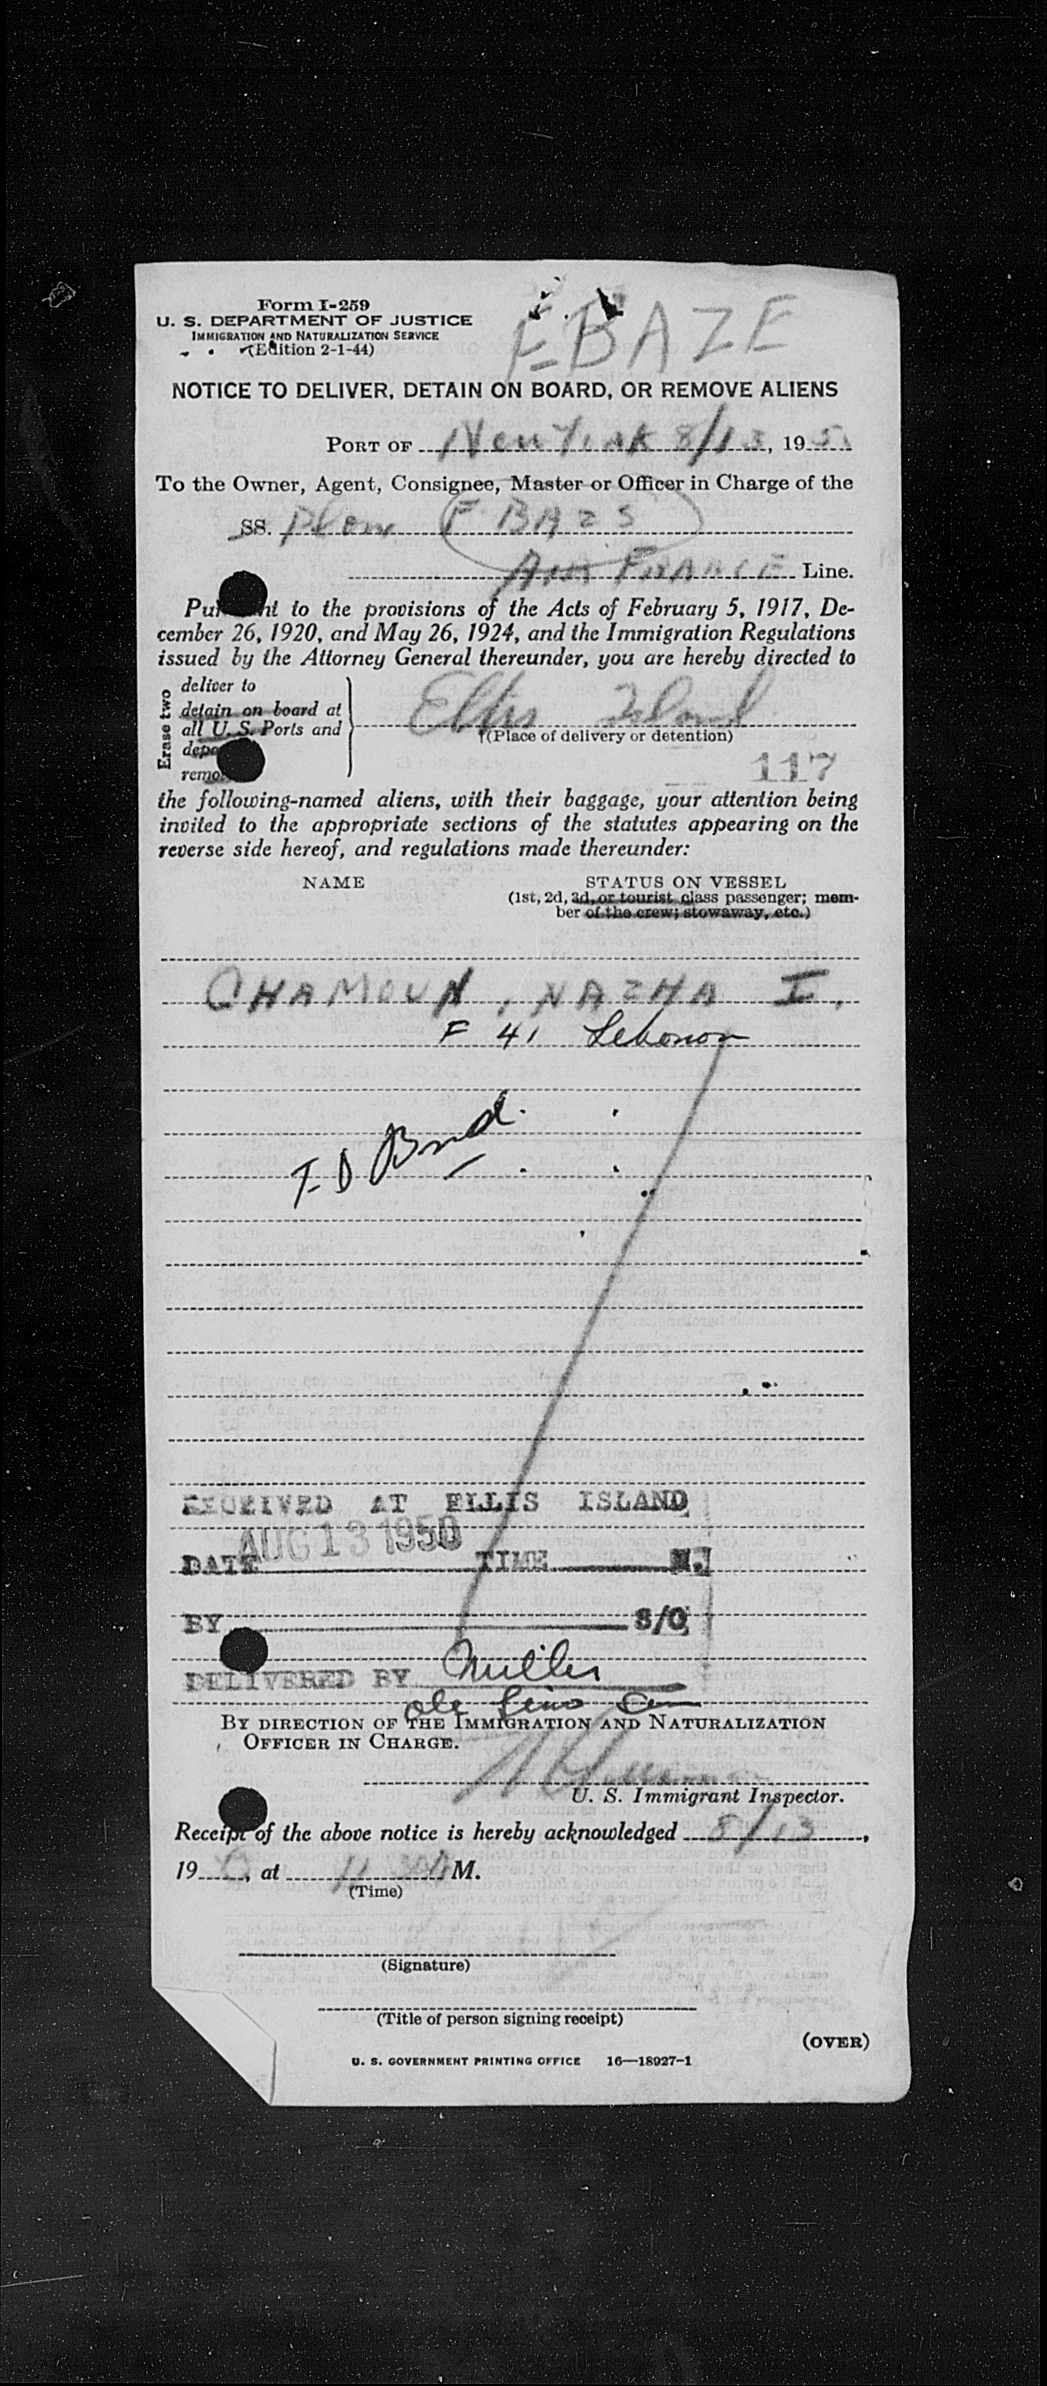 Form I-259
U. S. DEPARTMENT OF JUSTICE
IMMIGRATION AND NATURALIZATION SERVICE
(Edition 2-1-44)
FBAZE
NOTICE TO DELIVER, DETAIN ON BOARD, OR REMOVE ALIENS
PORT OF New York 8/13, 195
To the Owner, Agent, Consignee, Master or Officer in Charge of the
SS. Plane F BAZS
AIR FRANCE Line.
Pursuant to the provisions of the Acts of February 5, 1917, De-
cember 26, 1920, and May 26, 1924, and the Immigration Regulations
issued by the Attorney General thereunder, you are hereby directed to
Erase two
deliver to
detain on board at
all U. S. Ports and
remo
Ellis Island
(Place of delivery or detention)
117
the following-named aliens, with their baggage, your attention being
invited to the appropriate sections of the statutes appearing on the
reverse side hereof, and regulations made thereunder:
NAME STATUS ON VESSEL
(1st, 2d, 3d, or tourist class passenger; mem-
ber of the crew; stowaway, etc.)
CHAMOUN, NAZHA I.
F 41 Lebanon
T. D Bnd.
RECEIVED AT ELLIS ISLAND
AUG 13 1950
DATE TIME M.
BY S/O
DELIVERED BY Miller
BY DIRECTION OF THE IMMIGRATION AND NATURALIZATION
OFFICER IN CHARGE.
U. S. Immigrant Inspector.
Receipt of the above notice is hereby acknowledged 8/13,
19 , at 11 30A M.
(Time)
(Signature)
(Title of person signing receipt)
(OVER)
U. S. GOVERNMENT PRINTING OFFICE 16—18927-1